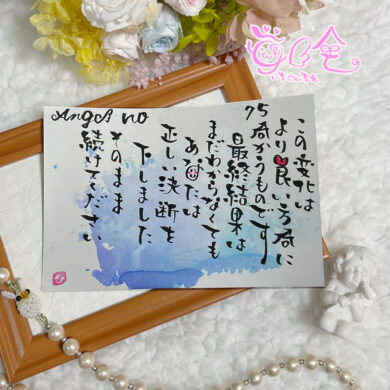 Angel no 75
この変化は
より良い方向に
向かうものです
最終結果は
まだわからなくても
あなたは
正しい決断を
下しました
そのまま
続けてください